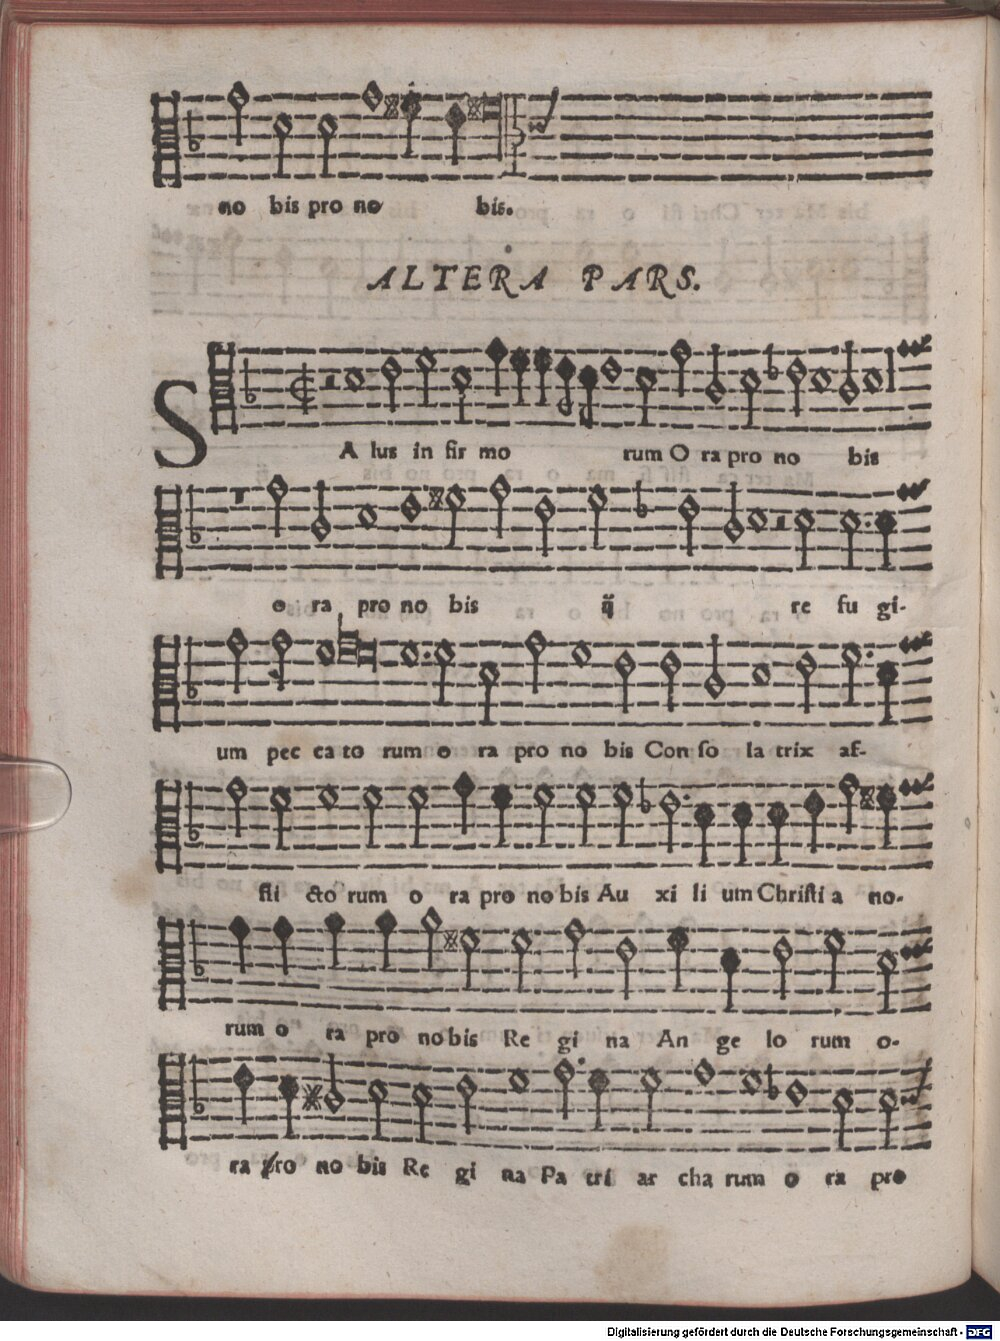 no bis pro no bis.
ALTERA PARS.
SA lus in fir mo rum O ra pro no bis
o ra pro no bis ij re fu gi-
um pec ca to rum o ra pro no bis Con so la trix af-
fli cto rum o ra pro no bis Au xi li um Christi a no-
rum o ra pro no bis Re gi na An ge lo rum o-
ra pro no bis Re gi na Pa tri ar cha rum o ra pro
Digitalisierung gefördert durch die Deutsche Forschungsgemeinschaft - DFG